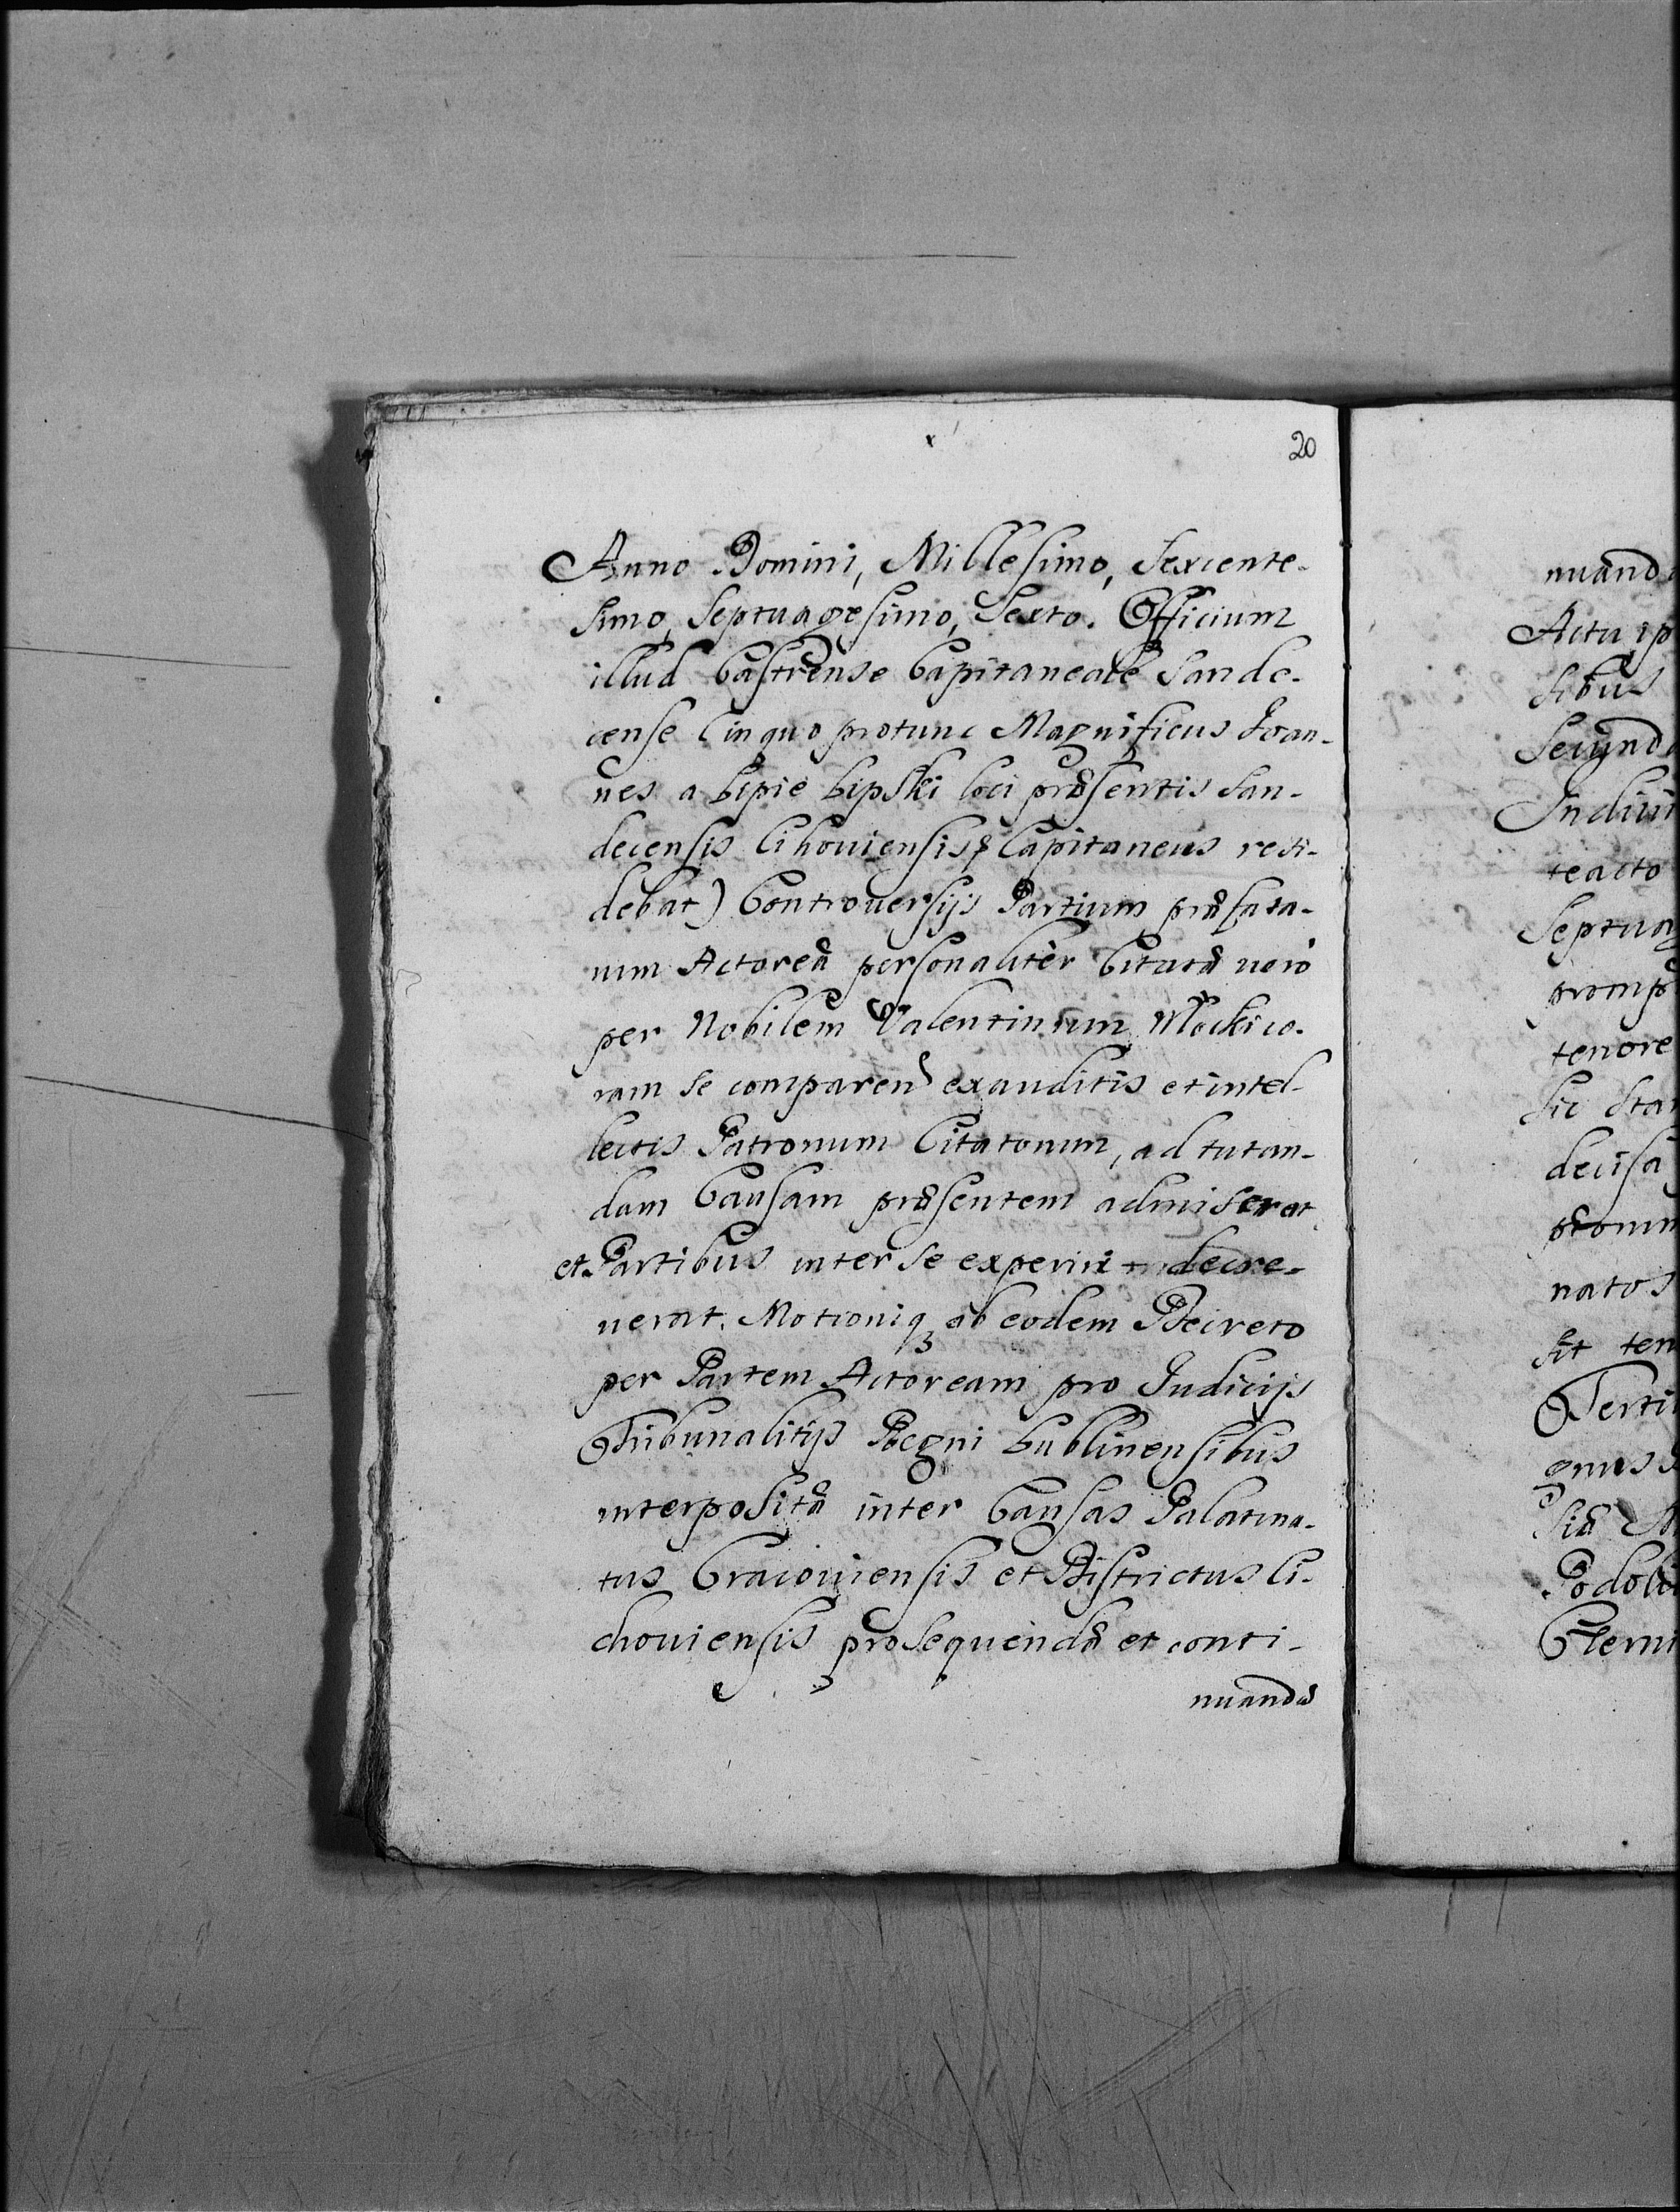 20
Anno Domini, Millesimo, Sexcente-
simo, Septuagesimo, Sexto. Officium
illud Castrense Capitaneale Sande-
cense (in quo protunc Magnificus Joan-
nes a Lipie Lipski loci præsentis San-
decensis Cihoviensisq Capitaneus resi-
debat) Controversijs Partium præfata-
rum Actoreâ personaliter Citatâ vero
per Nobilem Valentinum co-
ram se comparen exauditis et intel-
lectis Patronum Citatorum, ad tutan-
dam Causam præsentem admiserat
et Partibus inter se experiri decre-
verat. Motioniq ab eodem Decreto
per Partem Actoream pro Judicijs
Tribunalitijs Regni Lublinensibus
interpositâ inter Causas Palatina-
tus Cracoviensis et Districtus Ci-
choviensis prosequendâ et conti-
nuandâ
nuand
Actu ip
sibus
Secund
Judici
teacto
Septuag
promp
tenore
sic stan
decisa
natos
sit ten
Terti
gnus
Podoli